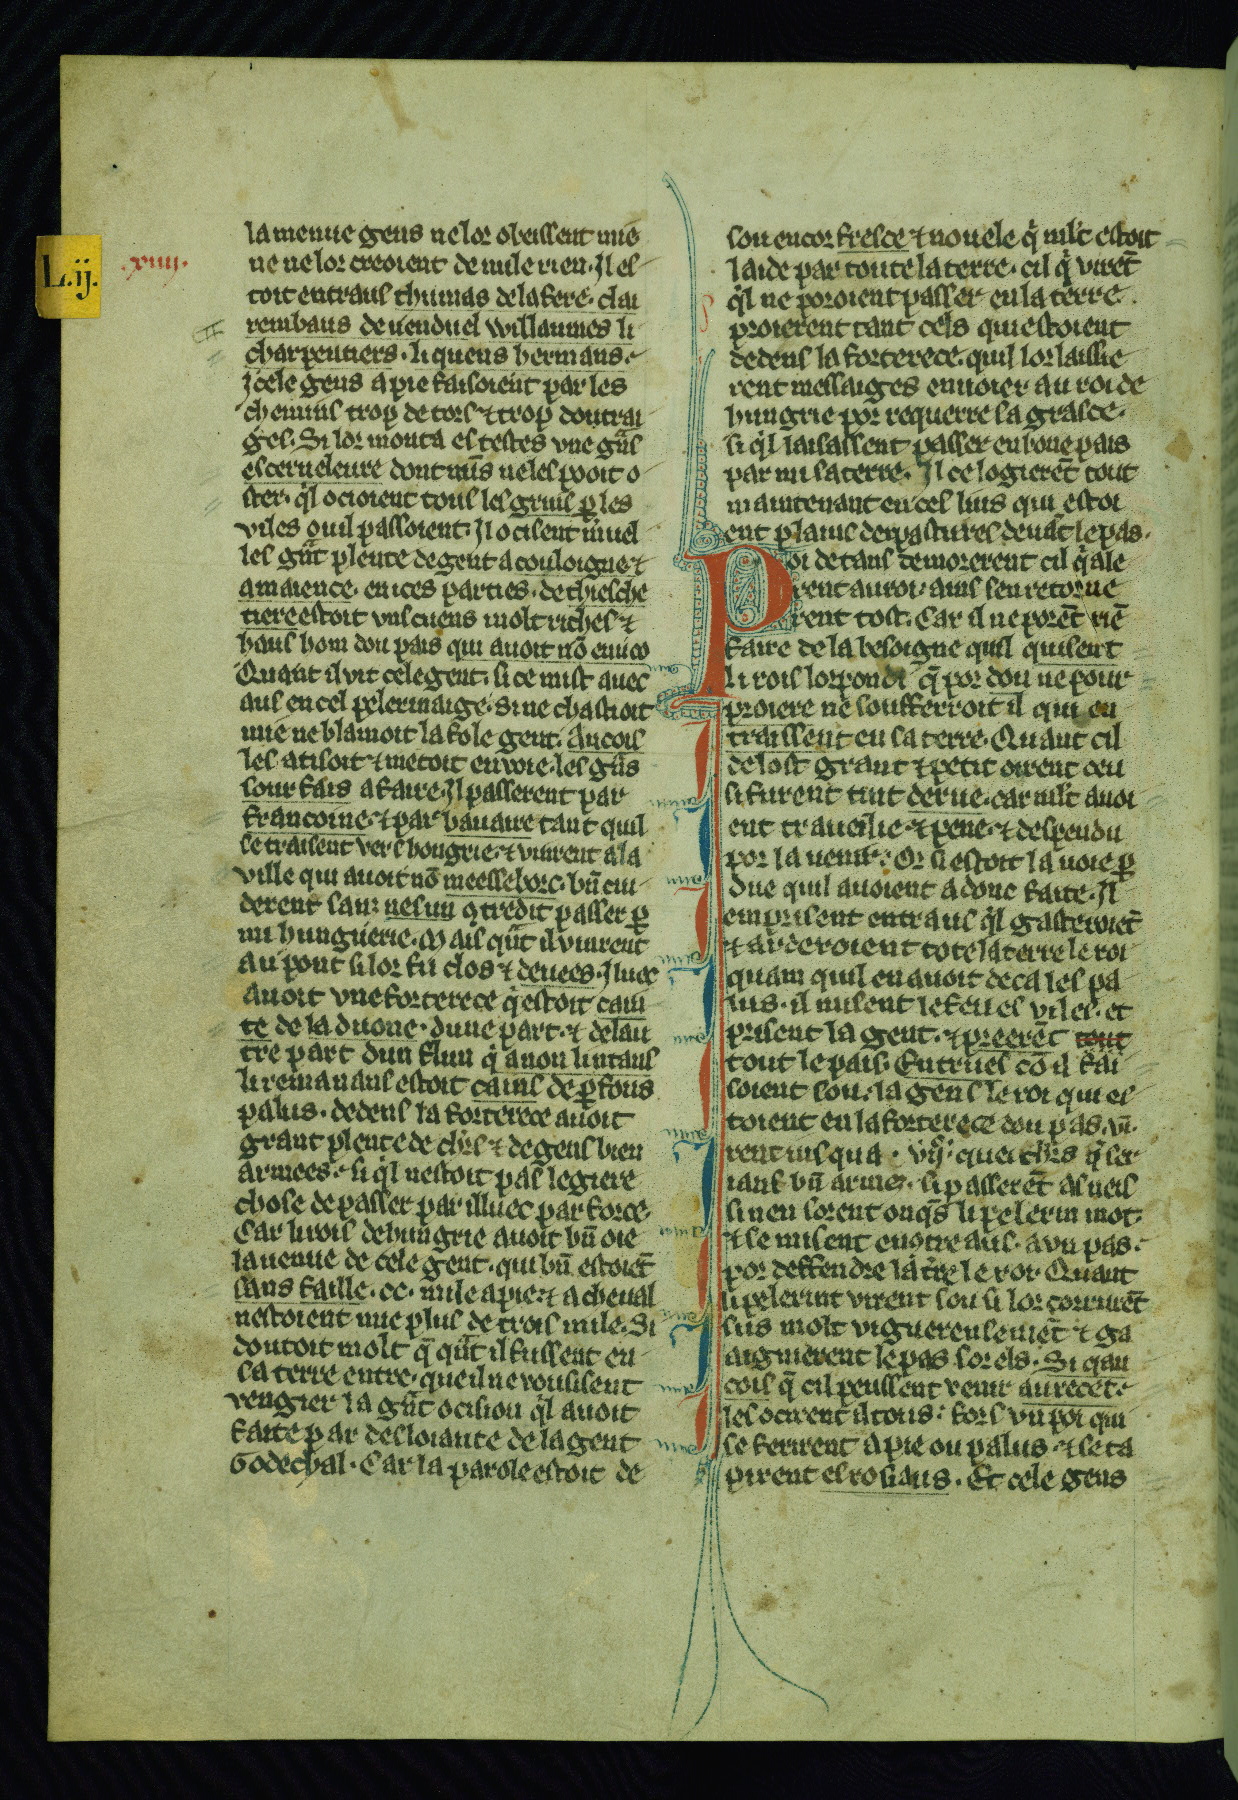 L.ij.
.xiiij.
la menue gens ne lor obeissent mie
ne ne lor creoient de nule rien. Il es
toit entraus thumas de la fere. clai
rembaus de uenduel willaumes li
charpentiers. li quens hermans.
Icele gens a pie faisoient par les
chemins trop de tors ⁊ trop doutrai
ges. Si lor monta es testes vne gñs
escerueleure dont nus ne les pooit o
ster. q̃l ocioient tous les griuis p̱ les
viles ou il passoient. Il ocisent mueil
les gñt plente de gent a couloigne ⁊
a maience. en ices parties. de thiesche
tiere estoit vns cuens molt riches ⁊
haus hom dou pais qui auoit nõ emico
Quant il vit cele gent. si ce mist auec
aus en cel pelerinaige. Si ne chastioit
mie ne blamoit la fole gent. Ancois
les atisoit ⁊ metoit en voie. les gñs
sourfais a faire. Il passerent par
francoine. ⁊ par bauaire tant quil
se traisent vers hongrie. ⁊ vinrent a la
ville qui auoit nõ meesseborc. bñ cui
derent sanz nesun 9tredit passer p̱
mi hunguerie. Mais qũt il vinrent
au pont si lor fu clos ⁊ deuees. Iluec
auoit vne forterece q̇ estoit cain
te de la dunoe. dune part. ⁊ de lau
tre part dun flun q̇ a non lintans
li remanans estoit cains de p̱fons
palus. dedens la forterece auoit
grant plente de ch'rs ⁊ de gens bien
armees. si q̃l nestoit pas legiere
chose de passer par illuec par force.
Car li rois de hungrie auoit bñ oie
la uenue de cele gent. qui bñ estoiẽt
sans faille. cc. mile a pie. ⁊ a cheual
nestoient mie plus de trois mile. Si
doutoit molt q̃ qũt il fussent en
sa terre entre. que il ne vousissent
vengier la gñt ocision q̃l auoit
faite par desloiante de la gent
Godechal. Car la parole estoit de
sou encor fresce ⁊ nouele q̇ mlt estoit
laide par toute la terre. cil q̇ virẽt
q̃l ne poroient passer en la terre.
proierent tant cels qui estoient
dedens la forterece. quil lor laissie
rent messaiges enuoier au roi de
hungrie por requerre sa grasce.
si q̃l laisassent passer en bone pais
par mi sa terre. Il ce logierẽt tout
maintenant en cel lius qui estoi
ent plains de pastures deuãt le pas.
Poi de tans demorerent cil q̇ ale
rent au roi. ains sen retorne
rent tost. Car il ne porẽt riẽ
faire de la besoigne quil quisent
li rois lor pondi q̃ por don ne pour
proiere ne soufferroit il qui en
traissent en sa terre. Quant cil
de lost grant ⁊ petit oirent ceu
si furent tuit derue. car mlt auoi
ent traueilie. ⁊ pene. ⁊ despendu
por la uenir. Or si estoit la uoie p̱
due quil auoient adonc faite. Il
emprisent entraus q̃l gasteroiẽt
⁊ arderoient tote la terre le roi
quam quil en auoit deca les pa
lus. il misent le feu es viles. et
prisent la gent. ⁊ preerẽt tout
tout le pais. Entrues cõ il fai
soient sou. la gens le roi qui es
toient en la forterece dou pas. vi
rent iusqua. vijͨ. que ch'rs q̃ ser
ians bñ armez. si passerẽt as ueis
si nen sorent onq̃s li pelerin mot.
⁊ se misent en9tre aus. a vn pas.
por deffendre la tr̃e le roi. Quant
li pelerint virent sou si lor corrurẽt
sus molt viguereusemẽt ⁊ ga
aignierent le pas sor els. Si q̃ an
cois q̃ cil peussent venir au recet.
les ocirent il tous. fors vn poi qui
se ferirent a pie ou palus. ⁊ se ta
pirent es rosiaus. Et cele gens